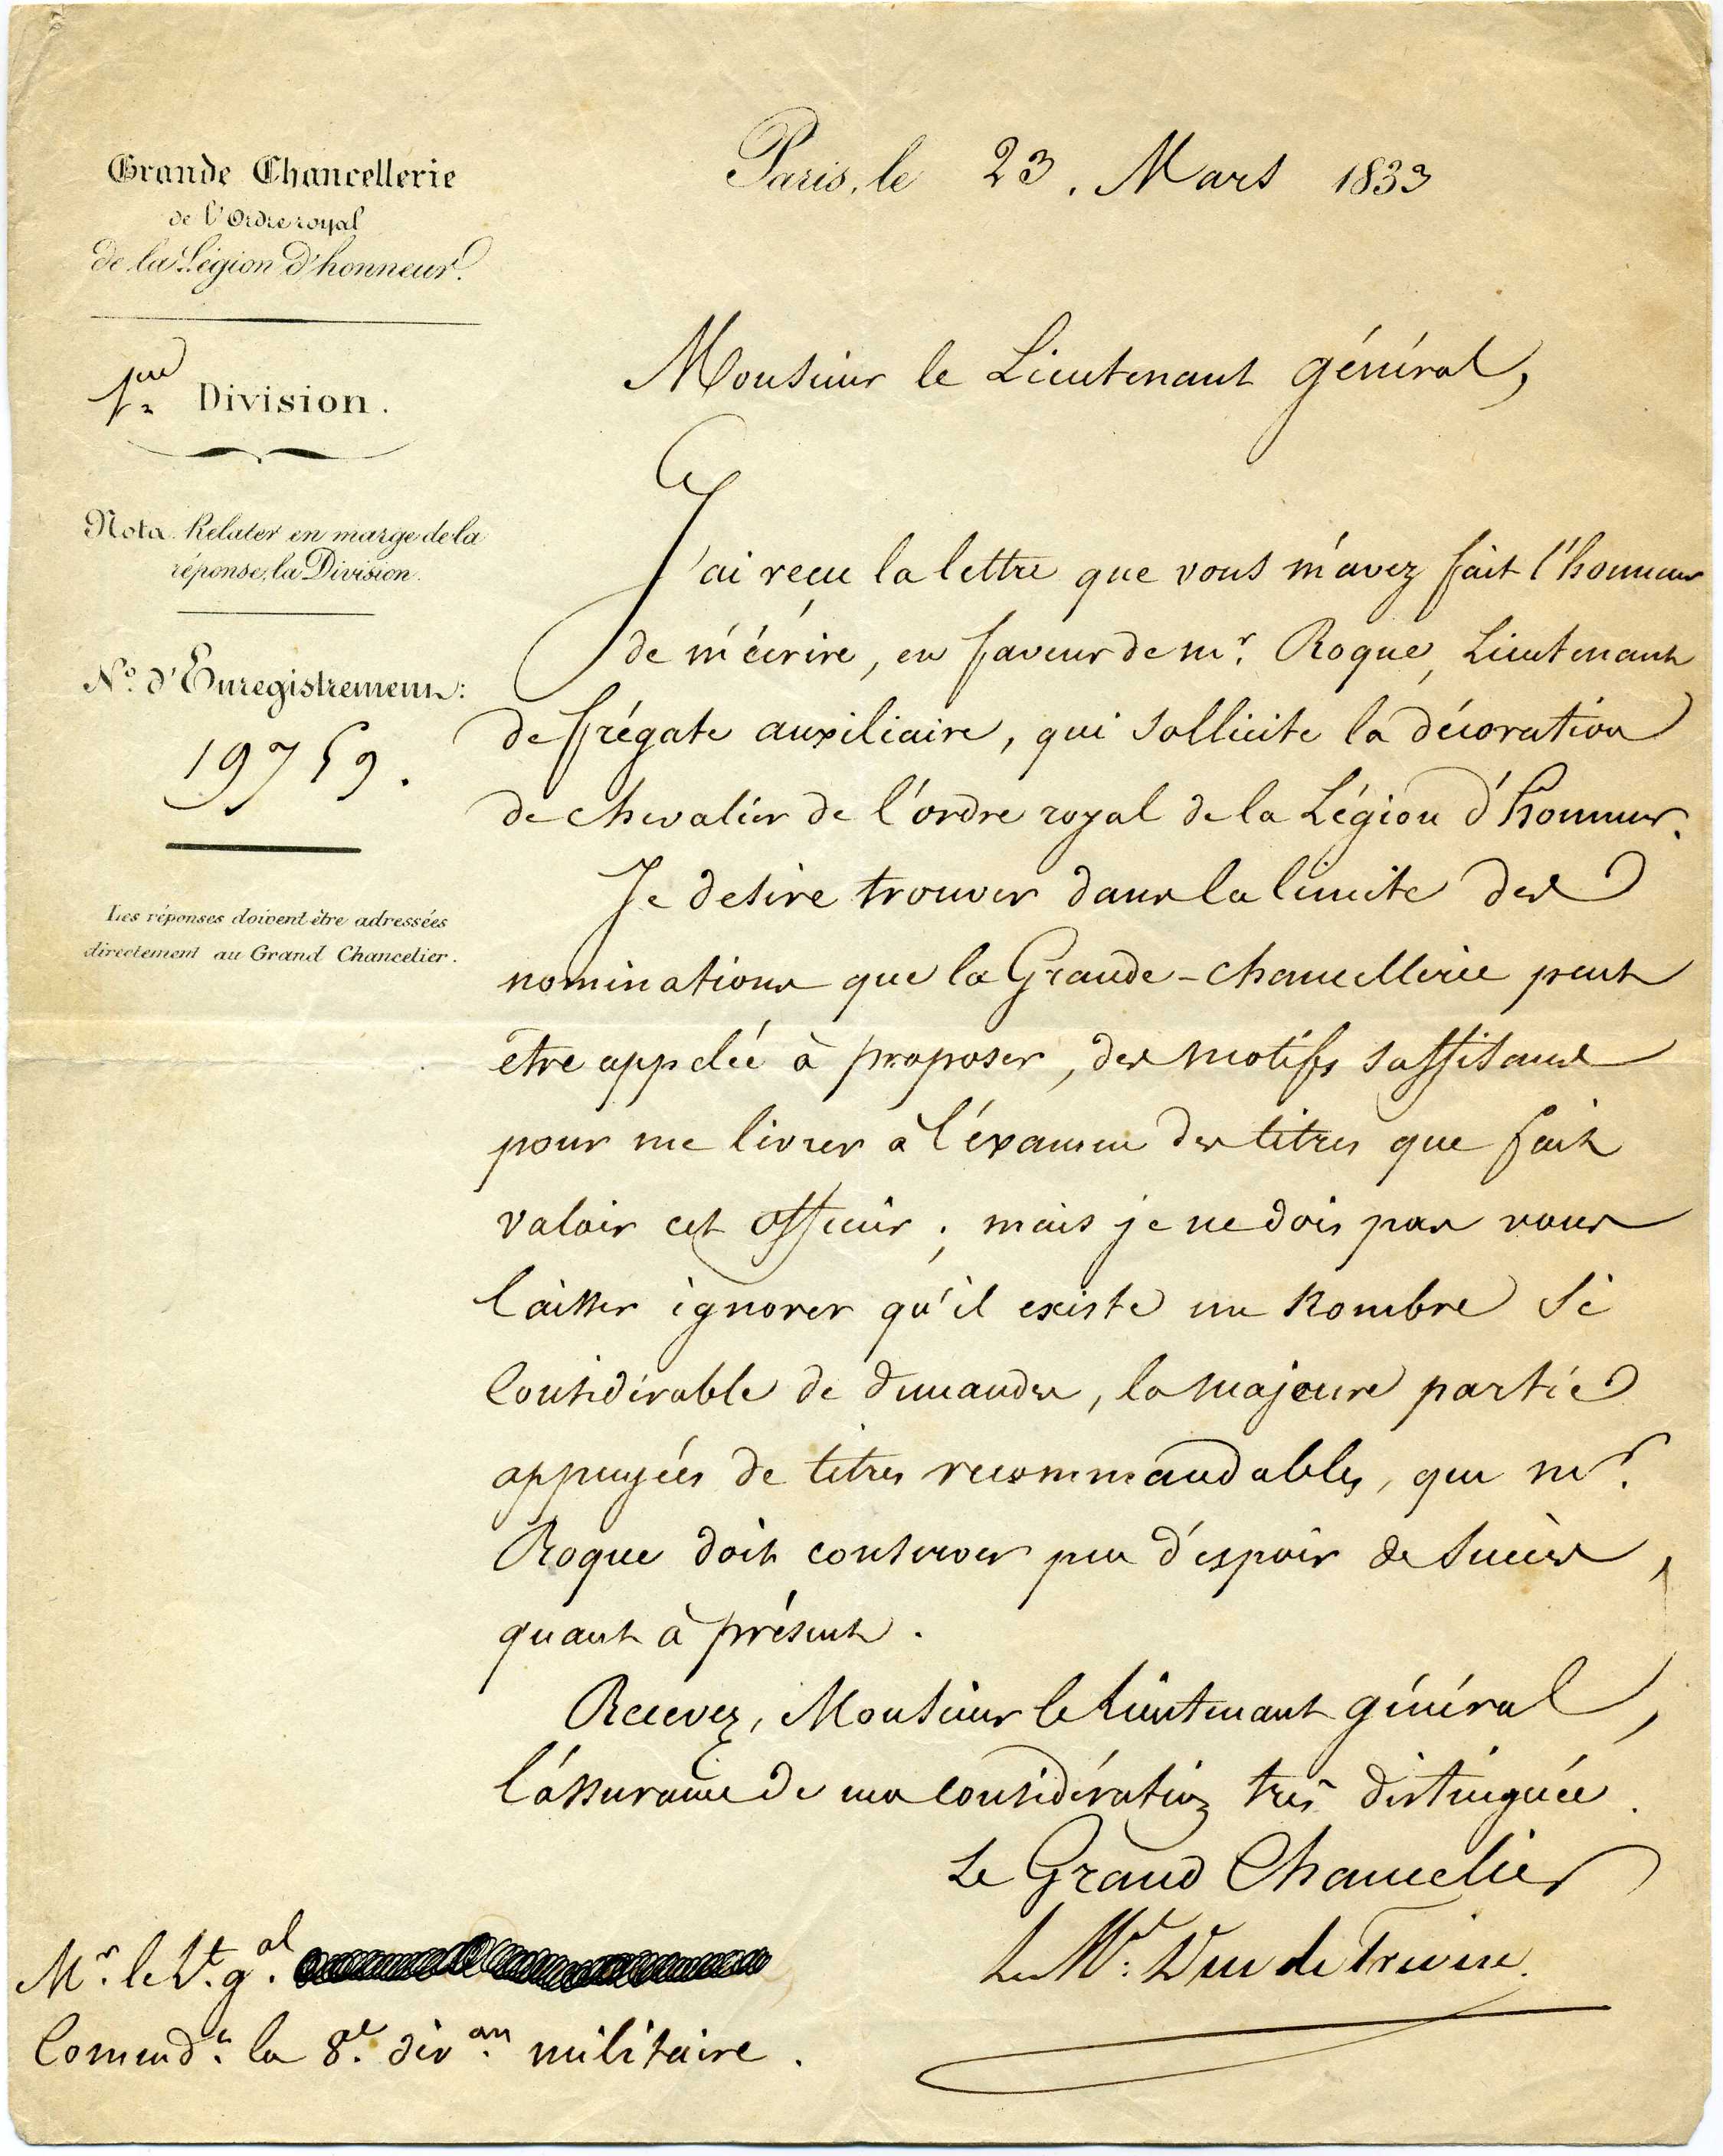 Grande Chancellerie
de l'Ordre royal
de la Légion d'honneur.
1ere Division.
Nota. Relater en marge de la
réponse, la Division.
N.o d'Enregistrement:
19759.
Les réponses doivent être adressées
directement au Grand Chancelier.
Paris, le 23. Mars 1833
Monsieur le Lieutenant général,
J'ai reçu la lettre que vous m'avez fait l'honneur
de m'écrire, en faveur de mr. Roque, Lieutenant
de frégate auxiliaire, qui sollicite la décoration
de chevalier de l'ordre royal de la Légion d'honneur.
Je desire trouver dans la limite des
nominations que la Grande-chancellerie peut
être appelée à proposer, des motifs suffisans
pour me livrer à l'éxamen des titres que fait
valoir cet officier; mais je ne dois pas vous
laisser ignorer qu'il existe un nombre si
considérable de demandes, la majeure partie
appuyées de titres recommandables, que mr.
Roque doit conserver peu d'espoir de succès,
quant à présent.
Recevez, Monsieur le Lieutenant général,
l'assurance de ma considération très distinguée.
Le Grand Chancelier
Le Mal. Duc de Trévise.
Mr. le Lt. gal.
Commdt. la 8e. divon. militaire.